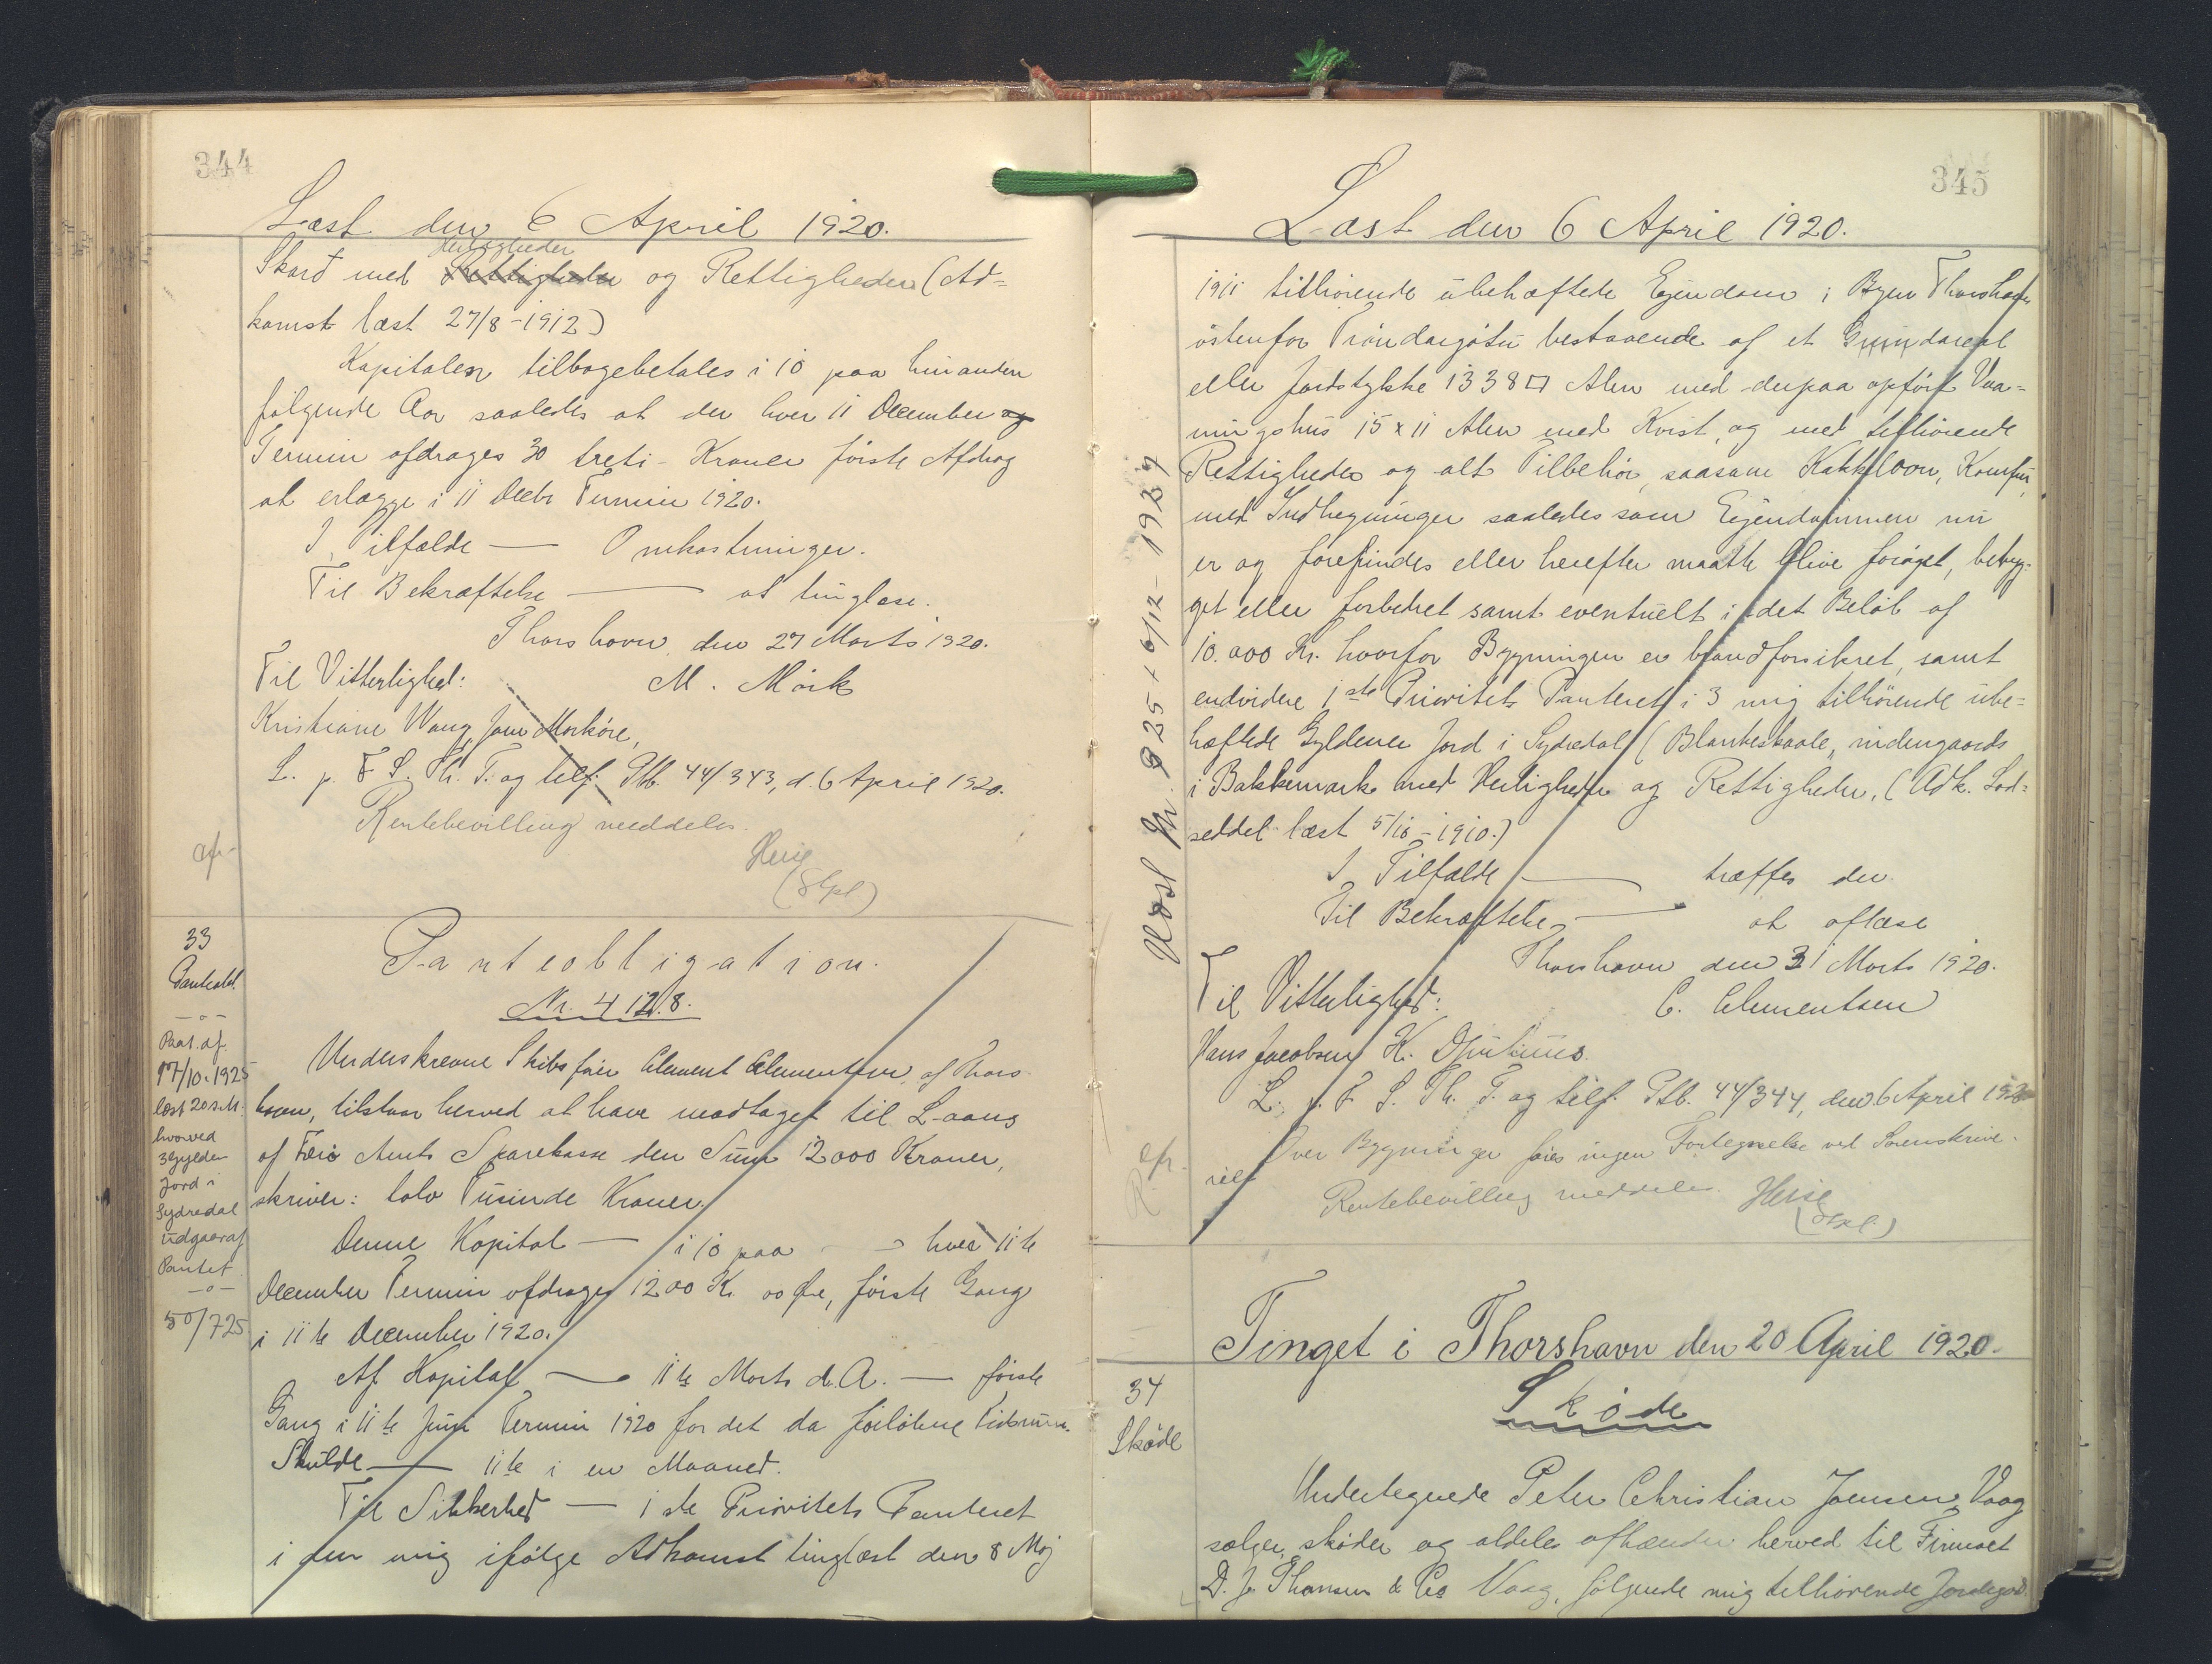 344
Læst den 6 April 1920.
Herligheder
Skarð med Rettigheder og Rettigheder (Ad=
komst læst 27/8-1912)
Kapitalen tilbagebetales i 10 paa hinanden
følgende Aar saaledes at der hver 11 December og
Termin afdrages 30 treti Kroner første Afdrag
at erlægge i 11 Decbr Termin 1920.
I Tilfælde — Omkostninger.
Til Bekræftelse — at tinglæse.
Thorshavn, den 27 Marts 1920.
Til Vitterlighed: M. Mörk
Kristiane Wang, Jane Morköre,
L. p. F. S. Th. T. og tilf. Ptb. 44/343, d. 6 April 1920.
Rentebevilling meddeles.
afr. Heise
(Skpl)
33
Panteobl.
-o-
Paat. af
17/10-1925
læst 20 s.M.
hvorved
3 Gylden
Jord i
Sydredal
udgaar af
Pantet
-o-
50/725
Panteobligation.
Nr. 4128.
Underskrevne Skibsfører Clement Clementsen, af Thors-
havn, tilstaar herved at have modtaget til Laans
af Færø Amts Sparekasse den Sum 12000 Kroner,
skriver: tolv Tusinde Kroner.
Denne Kapital — i 10 paa — hver 11te
December Termin afdrages 1200 Kr. 00 Øre, første Gang
i 11te December 1920.
Af Kapital — 11te Marts d. A. — første
Gang i 11te Juni Termin 1920 for det da forløbne Tidsrum.
Skulde — 11te i en Maaned.
Til Sikkerhed — 1ste Prioritets Panteret
i den mig ifølge Adkomst tinglæst den 8 Maj
345
Læst den 6 April 1920.
1911 tilhørende ubehæftede Ejendom i Byen Thorshavn
østenfor Tróndargøtu bestaaende af et Grundareal
eller Jordstykke 1338 □ Alen med derpaa opført Vaa-
ningshus 15 x 11 Alen med Kvist, og med tilhørende
Rettigheder og alt Tilbehør, saasom Kakkelovn, Komfur,
med Indhegninger saaledes som Ejendommen nu
er og forefindes eller herefter maatte blive forøget, bebyg-
get eller forbedret samt eventuelt i det Beløb af
10.000 Kr. hvorfor Bygningen er brandforsikret, samt
endvidere 1ste Prioritets Panteret i 3 mig tilhørende ube=
hæftede Gylden Jord i Sydredal (Blankeskaale, indengaards
i Bakkemark med Herligheder og Rettigheder, (Adk. Lod=
seddel læst 5/10-1910.)
I Tilfælde — træffes der.
Til Bekræftelse — at aflæse
Thorshavn den 31 Marts 1920.
Til Vitterlighed: C. Clementsen
Hans Jacobsen, K. Djurhuus.
L. p. F. S. Th. T. og tilf. Ptb. 44/344, den 6 April 1920
Over Bygninger føres ingen Fortegnelse ved Sorenskrive-
riet
Rentebevilling meddeles. Heise
(Skpl.)
afr.
Udsl. Nr. 825 + 6/12-1939
Tinget i Thorshavn den 20 April 1920.
34
Skøde
Skøde
Undertegnede Peter Christian Joensen, Vaag
sælger, skøder og aldeles afhænder herved til Firmaet
D. J. Thomsen & Co Vaag, følgende mig tilhørende Jordegods